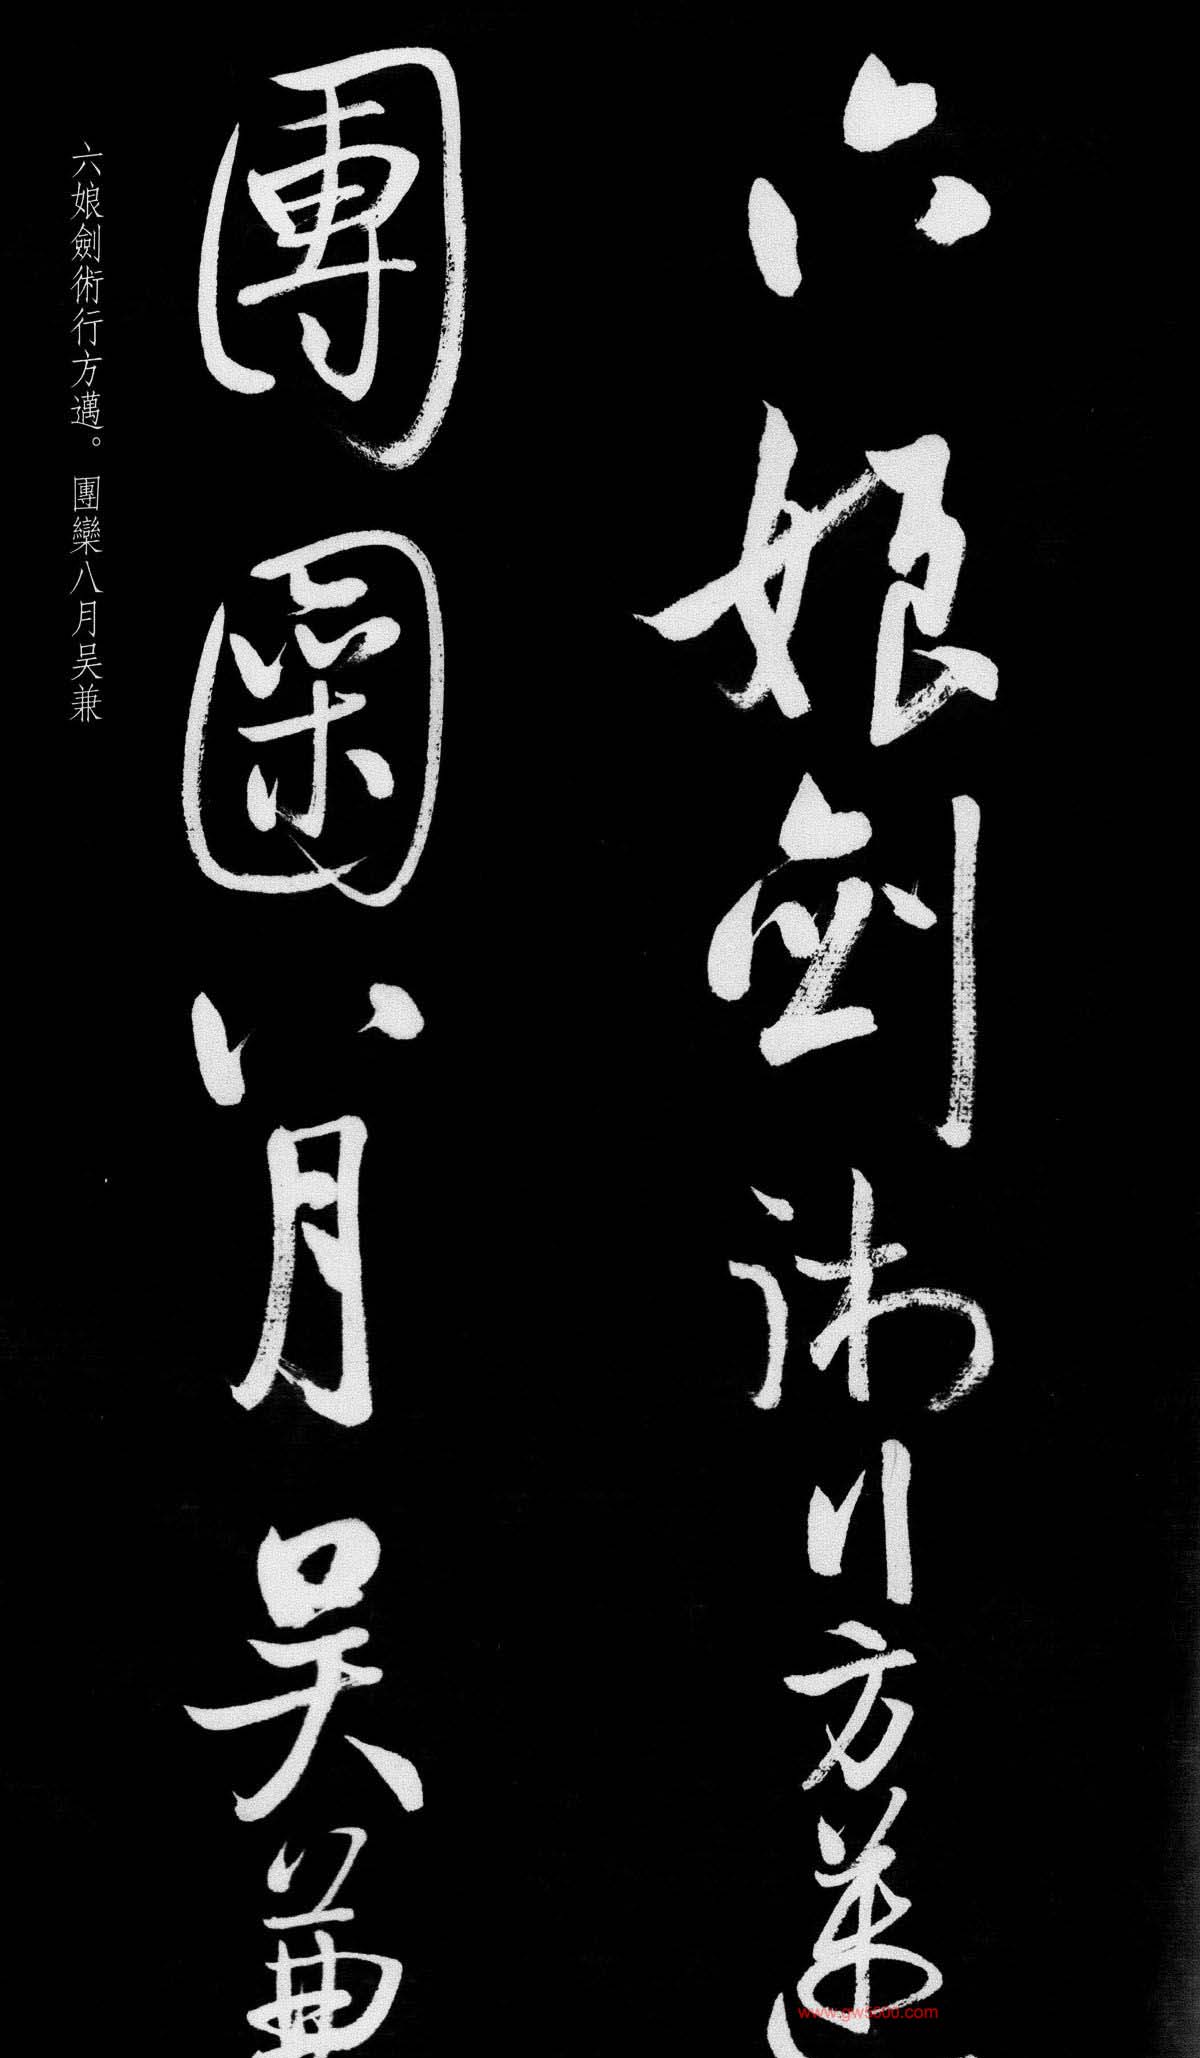 六娘劍術行方邁
團欒八月吳兼
六娘劍術行方邁。團欒八月吳兼
www.gw5000.com